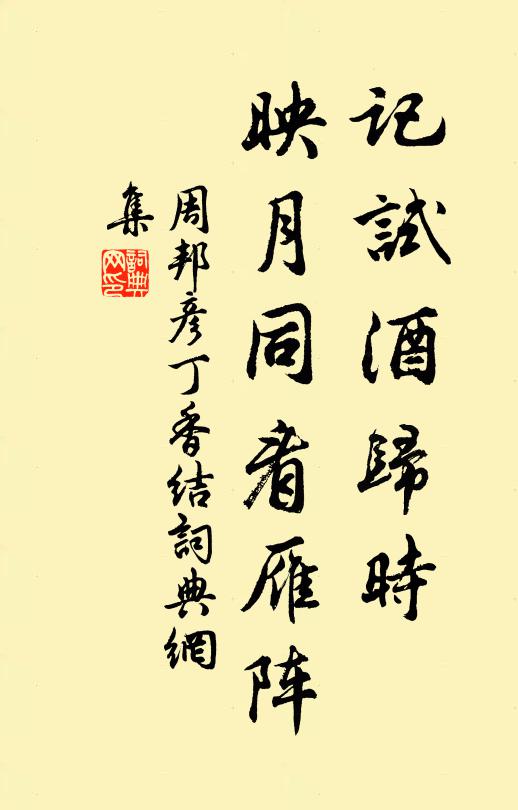 記試酒歸時
映月同看雁阵
周邦彦丁香结詞典網
集
詞典
网印